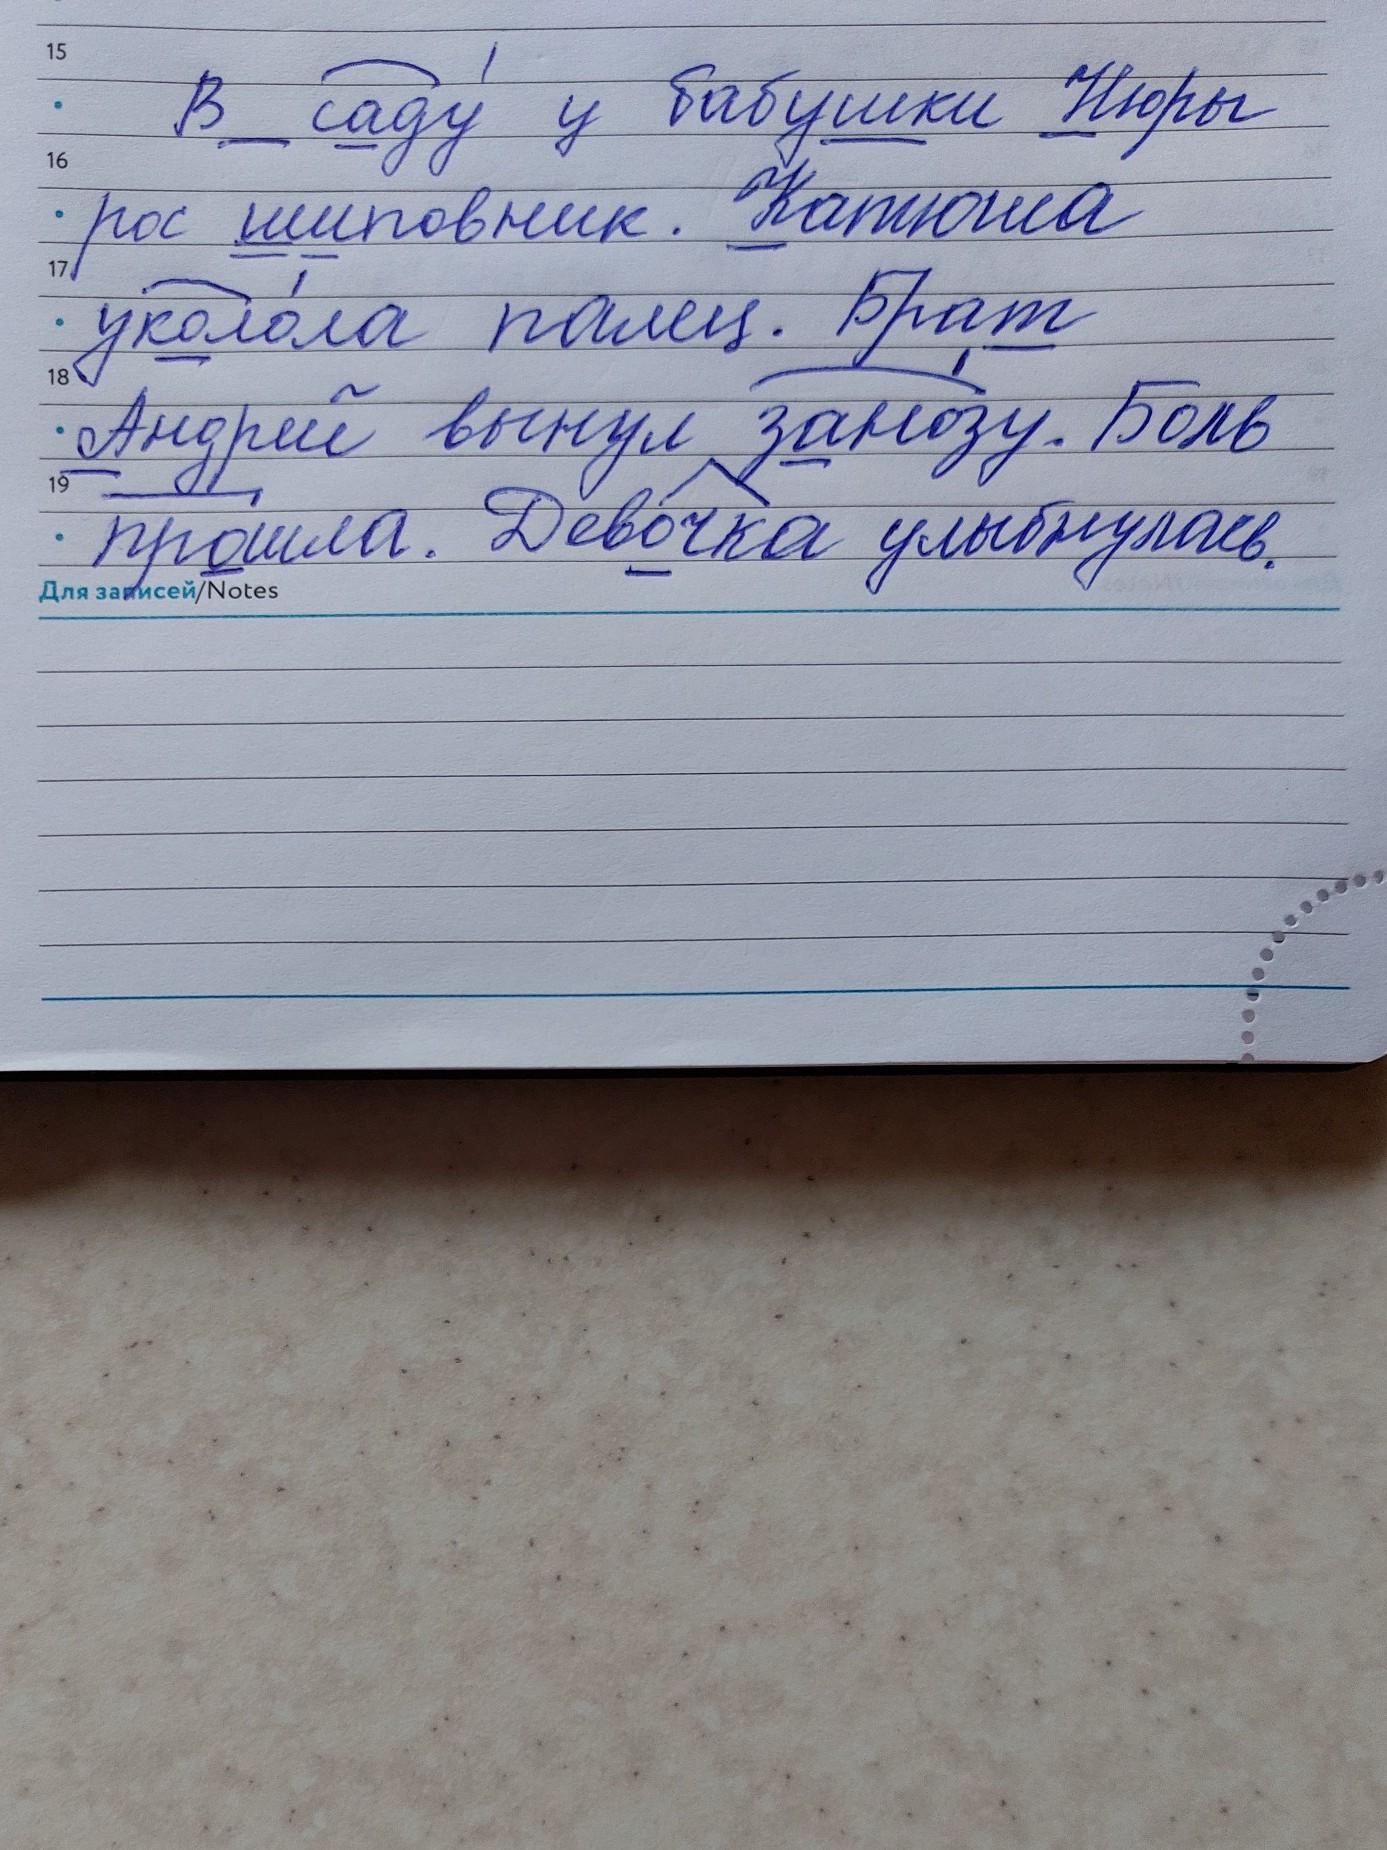 15
В саду у бабушки Нюры
16
рос шиповник. Катюша
17
уколола палец. Брат
18
Андрей вынул занозу. Боль
19
прошла. Девочка улыбнулась.
Для записей/Notes